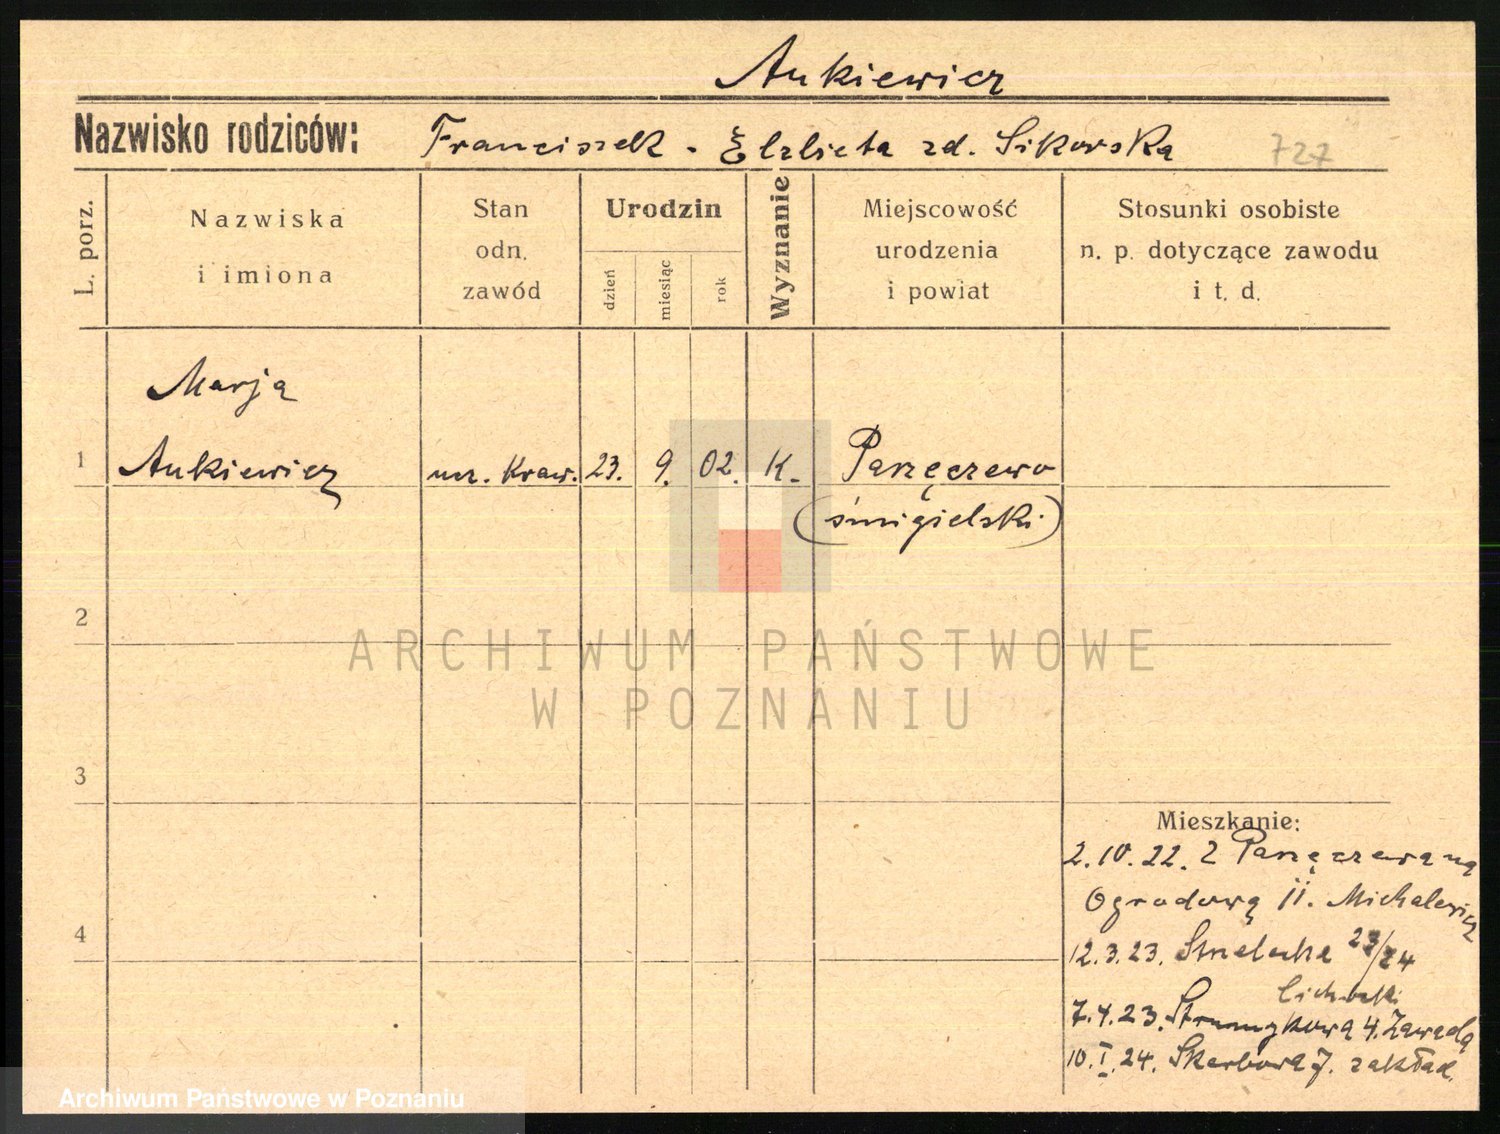 Aukiewicz
Nazwisko rodziców: Franciszek - Elżbieta zd. Sikorska 727
L. porz.
Nazwiska i imiona
Stan odn. zawód
Urodzin
dzień miesiąc rok
Wyznanie
Miejscowość urodzenia i powiat
Stosunki osobiste n. p. dotyczące zawodu i t. d.
Marja
1 Aukiewicz ucz. Kraw. 23. 9. 02. K. Parzęczewo
(śmigielski)
2
ARCHIWUM PAŃSTWOWE
W POZNANIU
3
Mieszkanie:
2.10.22. z Parzęczewa na
Ogrodową 11. Michalewicz
4
12.3.23. Strzelecka 23/24
Cichocki
7.4.23. Strumykowa 4. Zawada
10.I.24. Skarbowa 7. zakład.
Archiwum Państwowe w Poznaniu